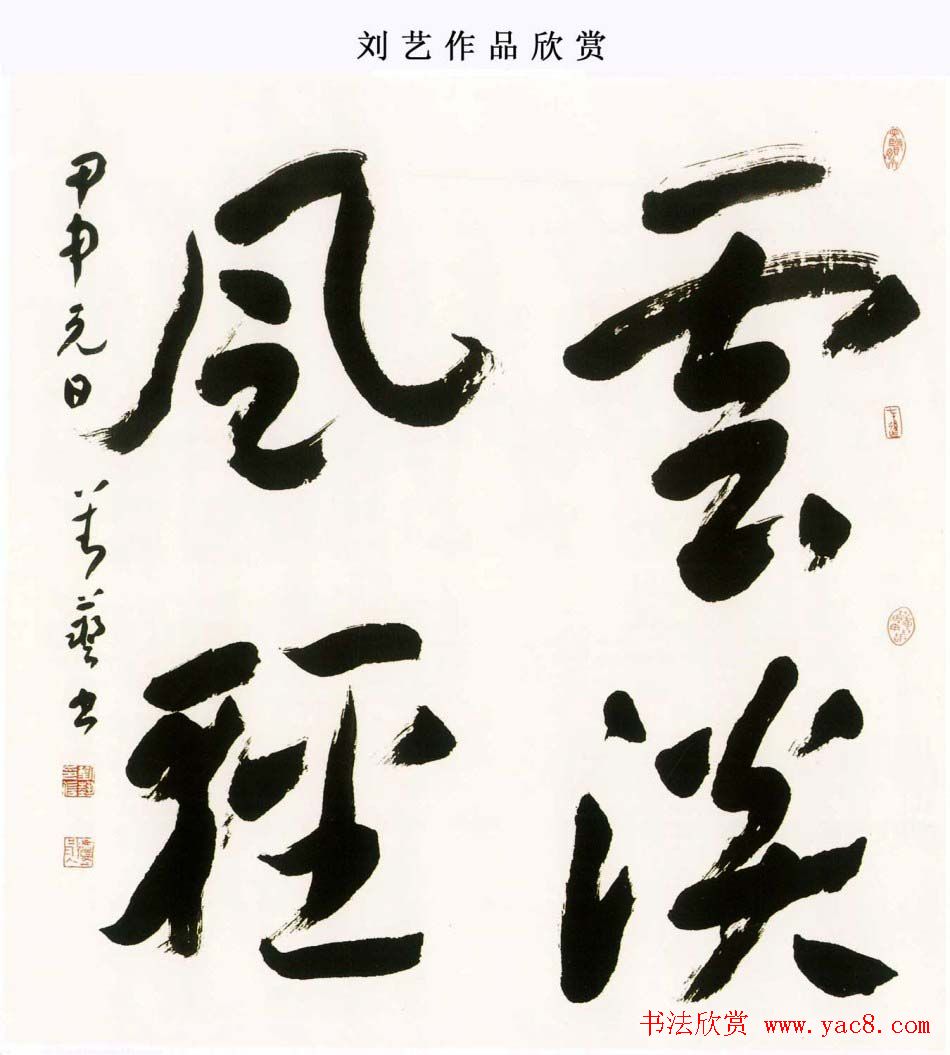 刘艺作品欣赏
雲淡
風輕
甲申元日 刘藝书
书法欣赏 www.yac8.com